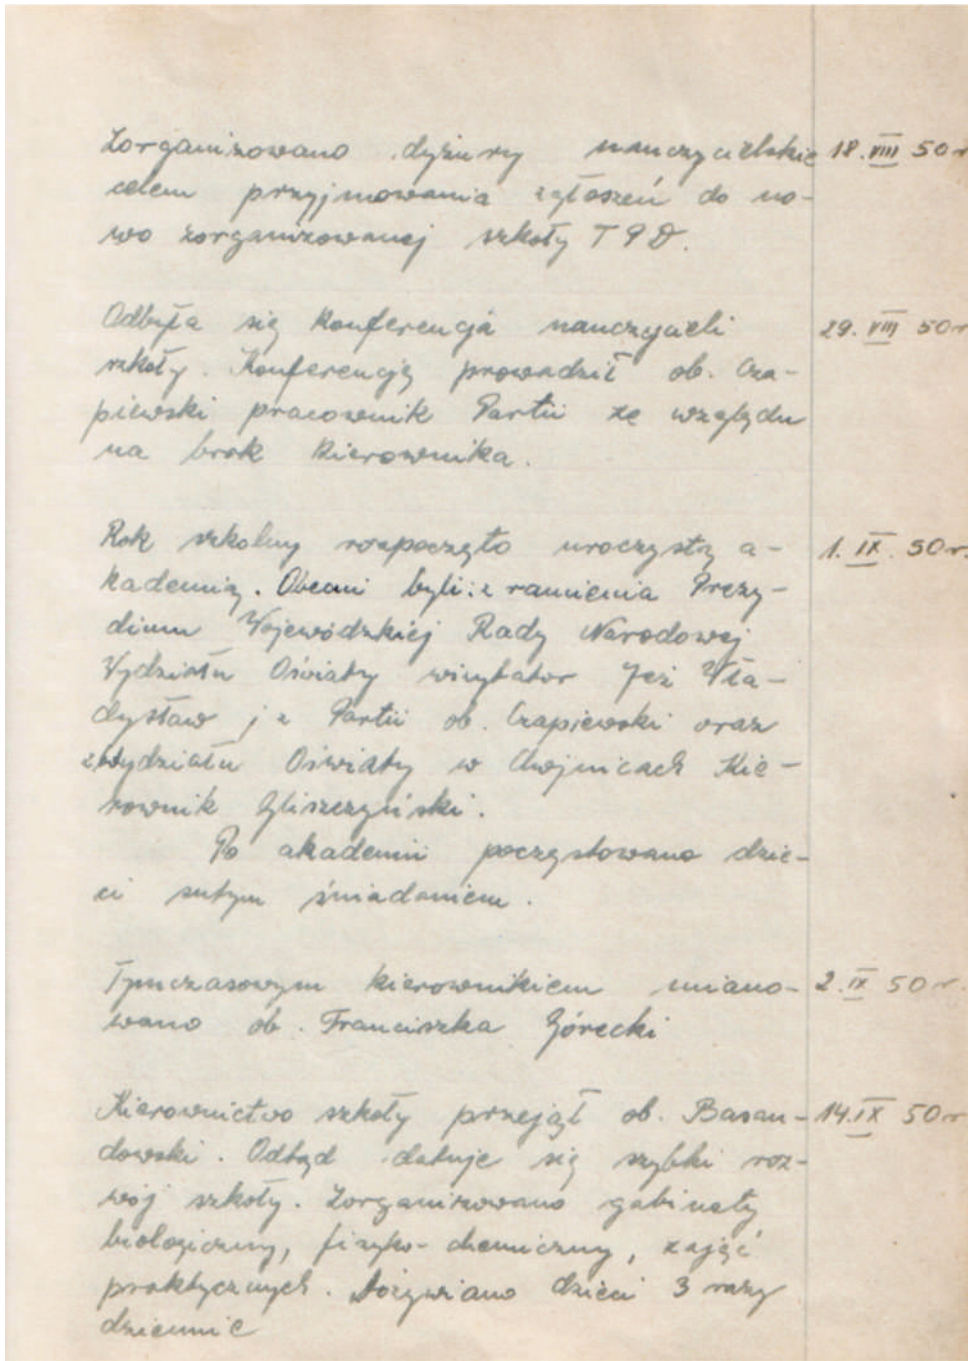 Zorganizowano dyżury nauczycielskie 18. VIII 50 r
celem przyjmowania zgłoszeń do no-
wo zorganizowanej szkoły TPD.
Odbyła się Konferencja nauczycieli 29. VIII 50 r
szkoły. Konferencję prowadził ob. Cza-
piewski pracownik Partii ze względu
na brak kierownika.
Rok szkolny rozpoczęto uroczystą a- 1. IX. 50 r.
kademią. Obecni byli: z ramienia Prezy-
dium Wojewódzkiej Rady Narodowej
Wydziału Oświaty wizytator Jeż Wła-
dysław j z Partii ob. Czapiewski oraz
z Wydziału Oświaty w Chojnicach Kie-
rownik Gliszczyński.
Po akademii poczęstowano dzie-
ci sutym śniadaniem.
Tymczasowym kierownikiem miano- 2. IX 50 r.
wano ob. Franciszka Górecki
Kierownictwo szkoły przejął ob. Basan- 14. IX 50 r
dowski. Odtąd datuje się szybki roz-
wój szkoły. Zorganizowano gabinety
biologiczny, fizyko-chemiczny, zajęć
praktycznych. Dożywiano dzieci 3 razy
dziennie